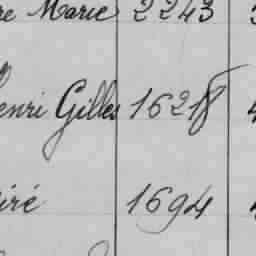 re Marie 2243
enri Gilles 16218
iré 1694